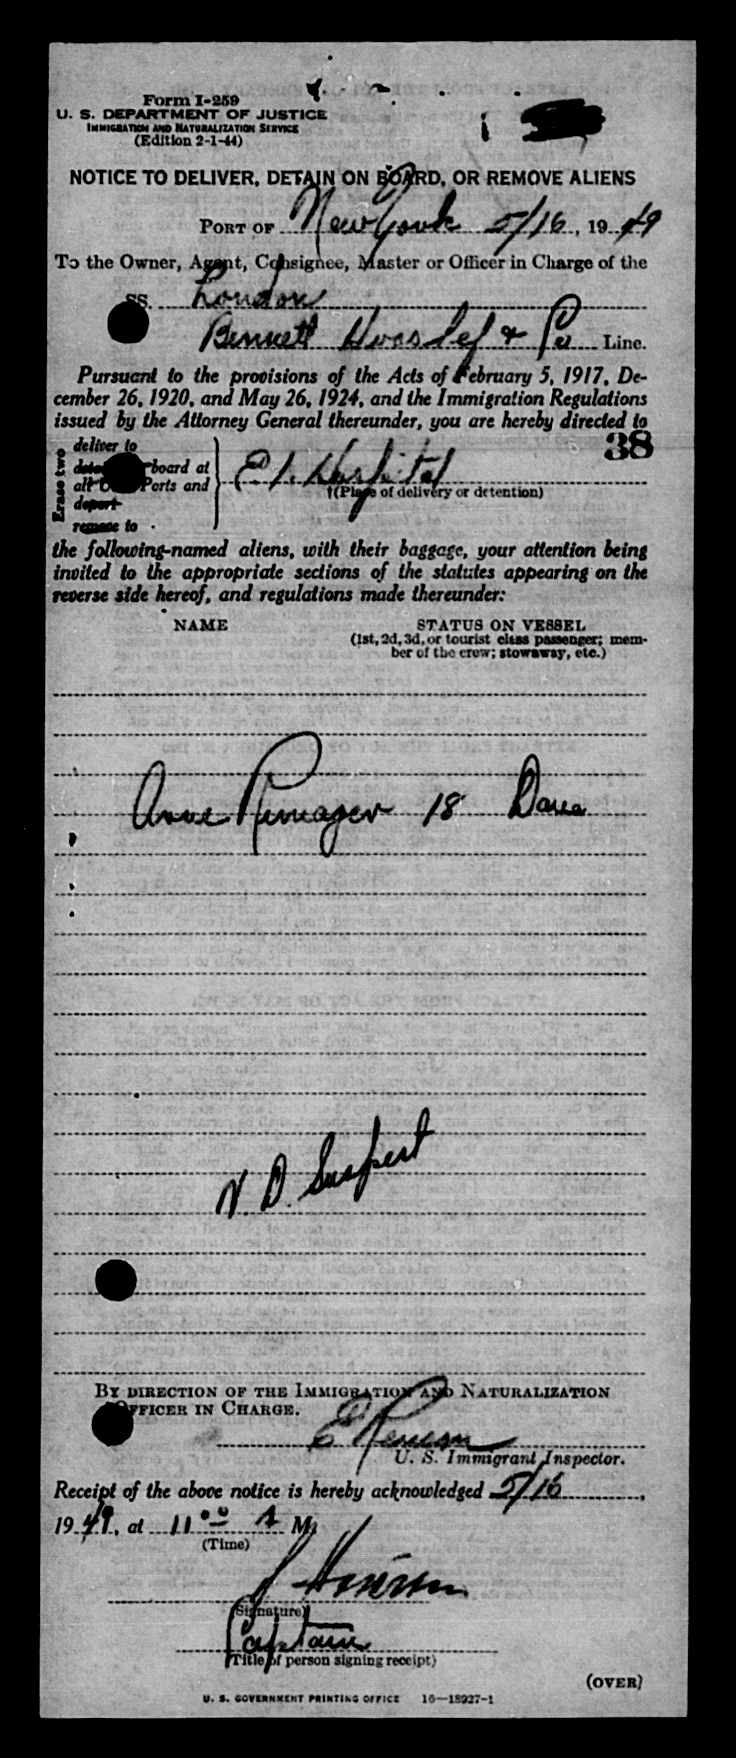 Form I-259
U. S. DEPARTMENT OF JUSTICE
IMMIGRATION AND NATURALIZATION SERVICE
(Edition 2-1-44)
NOTICE TO DELIVER, DETAIN ON BOARD, OR REMOVE ALIENS
PORT OF New York 5/16, 19 49
To the Owner, Agent, Consignee, Master or Officer in Charge of the
SS. London
Bennett & Co Line.
Pursuant to the provisions of the Acts of February 5, 1917, De-
cember 26, 1920, and May 26, 1924, and the Immigration Regulations
issued by the Attorney General thereunder, you are hereby directed to
38
Erase two
deliver to
board at
all Ports and
depart
remove to
E I. Hospital
†(Place of delivery or detention)
the following-named aliens, with their baggage, your attention being
invited to the appropriate sections of the statutes appearing on the
reverse side hereof, and regulations made thereunder:
NAME STATUS ON VESSEL
(1st, 2d, 3d, or tourist class passenger; mem-
ber of the crew; stowaway, etc.)
18 Dane
V. D. Suspect
BY DIRECTION OF THE IMMIGRATION AND NATURALIZATION
OFFICER IN CHARGE.
U. S. Immigrant Inspector.
Receipt of the above notice is hereby acknowledged 5/16,
19 49, at 11 00 A M.
(Time)
(Signature)
Captain
(Title of person signing receipt)
(OVER)
U. S. GOVERNMENT PRINTING OFFICE 16—18927-1